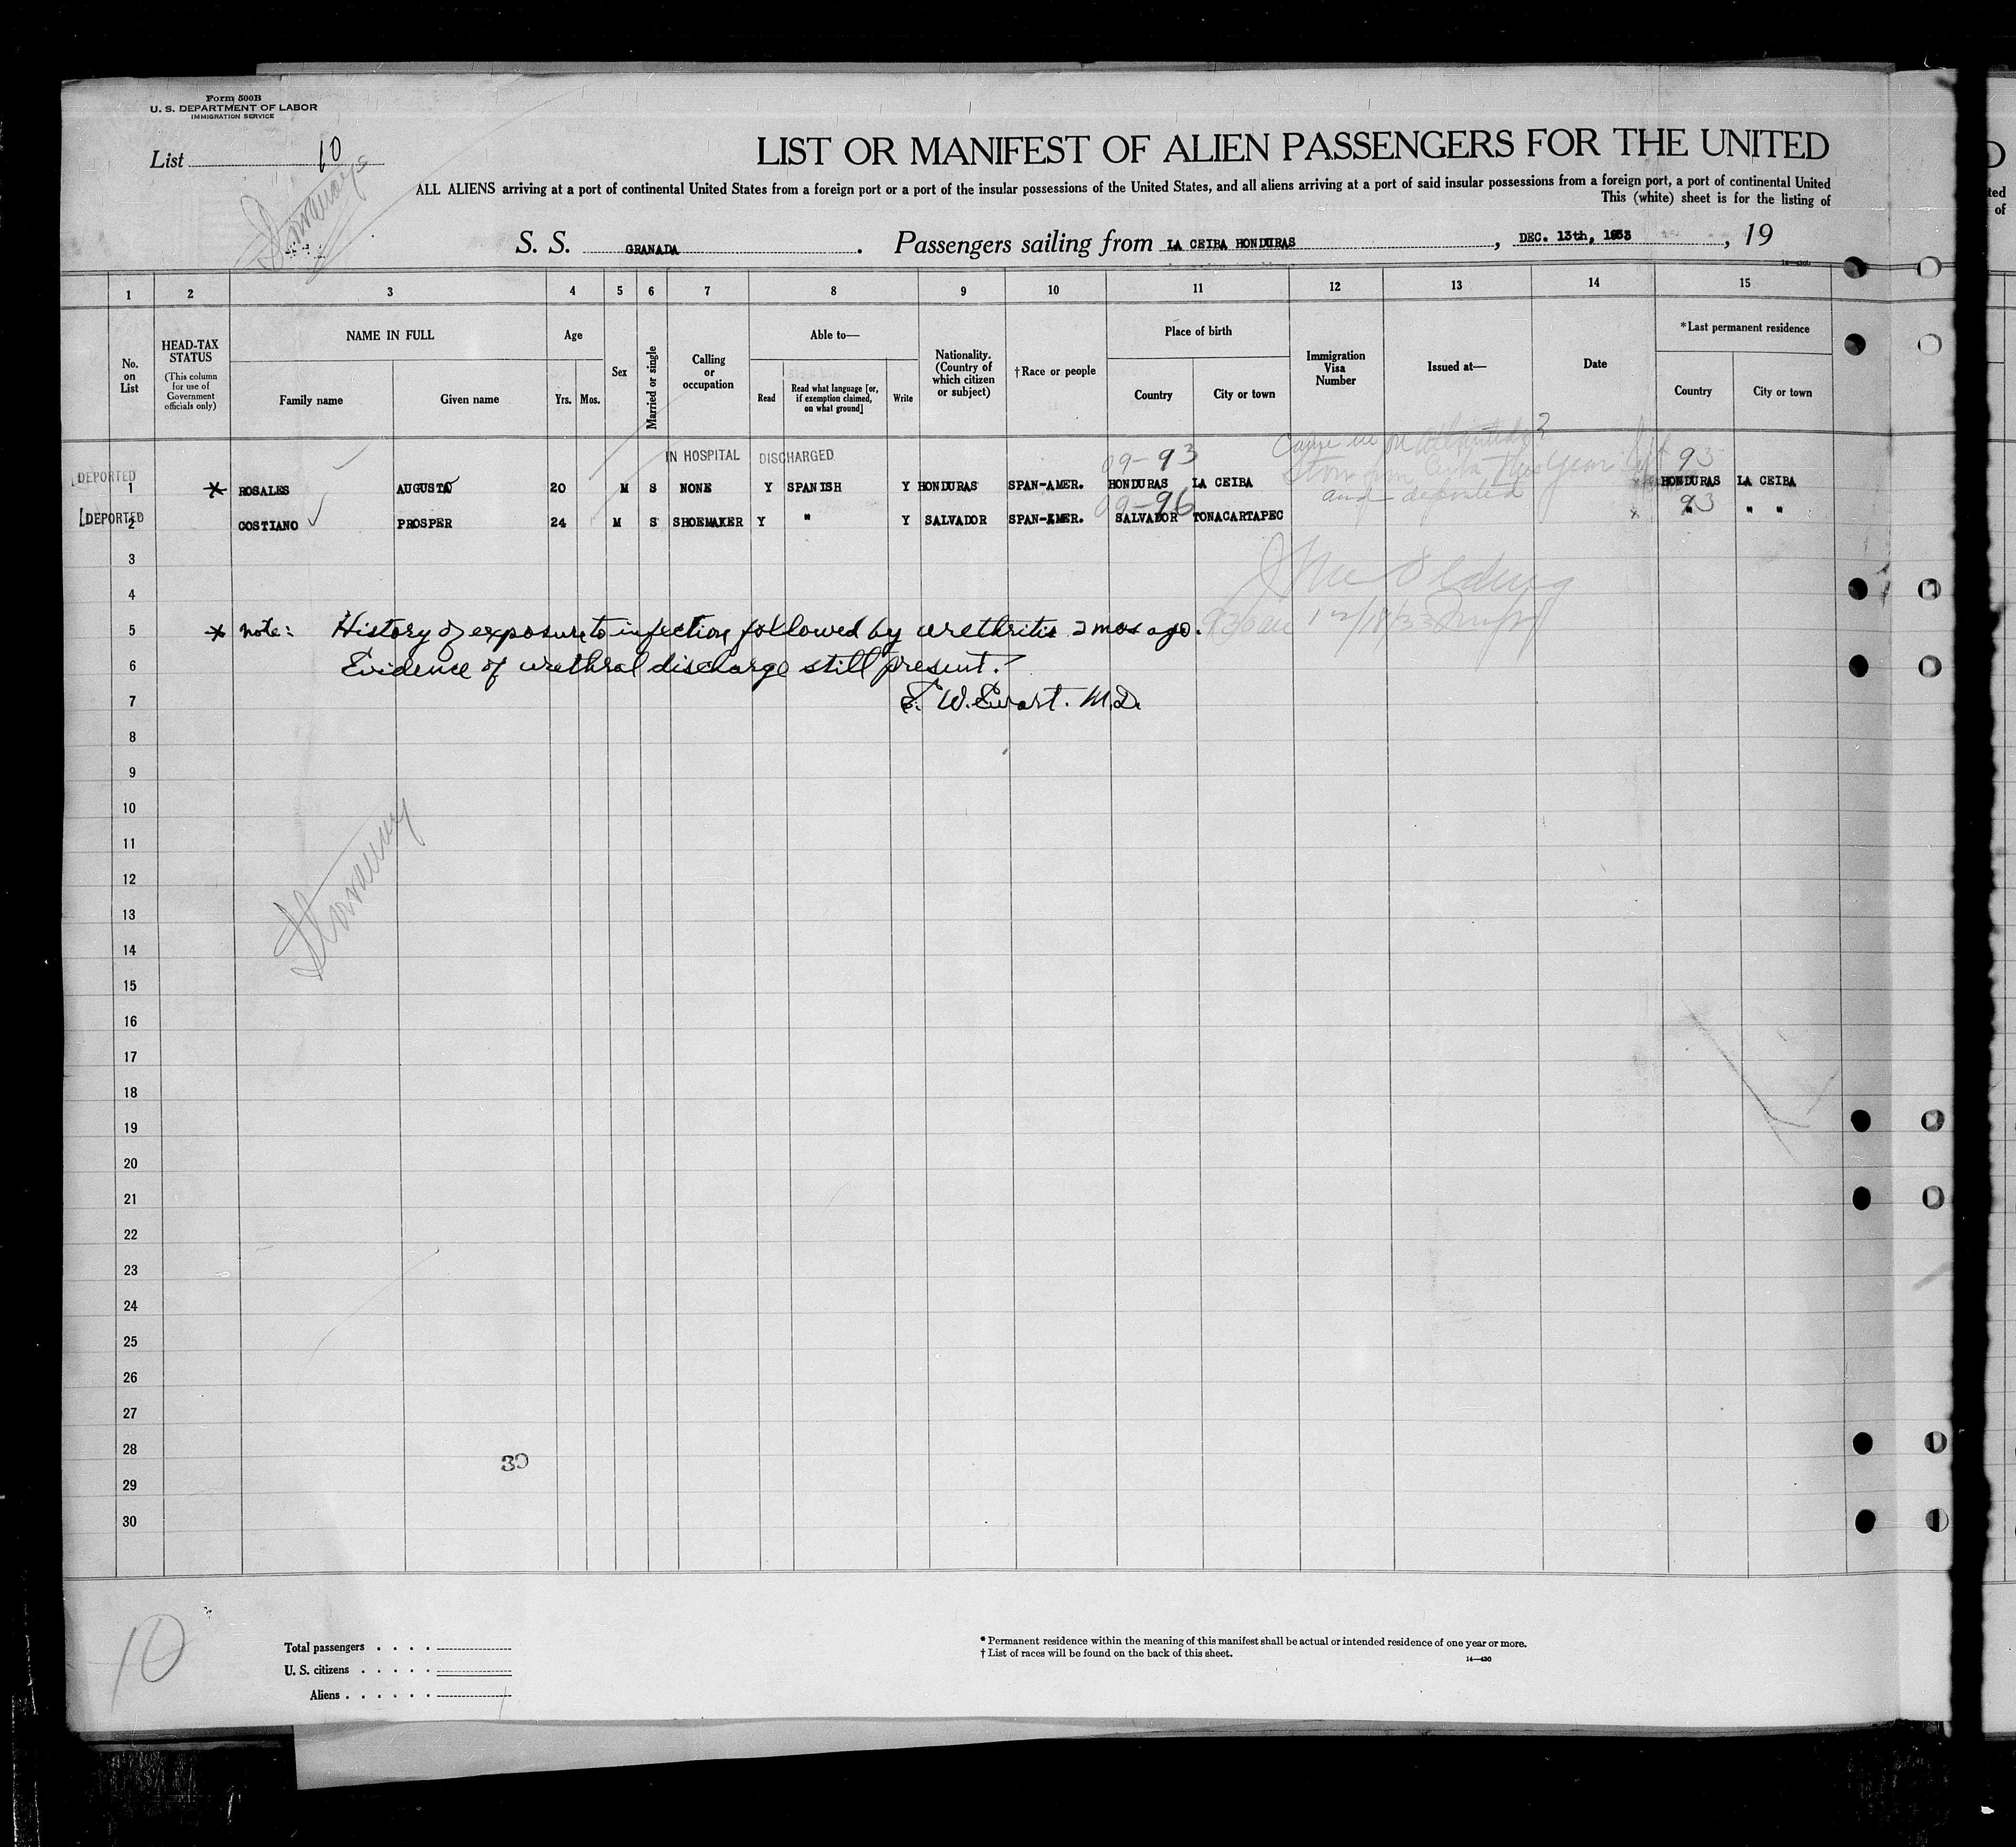 Form 500B
U. S. DEPARTMENT OF LABOR
IMMIGRATION SERVICE
List 10
Stowaways
LIST OR MANIFEST OF ALIEN PASSENGERS FOR THE UNITED
ALL ALIENS arriving at a port of continental United States from a foreign port or a port of the insular possessions of the United States, and all aliens arriving at a port of said insular possessions from a foreign port, a port of continental United
This (white) sheet is for the listing of
S. S. GRANADA. Passengers sailing from LA CEIBA HONDURAS, DEC. 13th, 1933, 19
1 2 3 4 5 6 7 8 9 10 11 12 13 14 15
No. on List
HEAD-TAX STATUS
(This column for use of Government officials only)
NAME IN FULL
Family name Given name
Age
Yrs. Mos.
Sex
Married or single
Calling or occupation
Able to—
Read Read what language [or, if exemption claimed, on what ground] Write
Nationality. (Country of which citizen or subject)
†Race or people
Place of birth
Country City or town
Immigration Visa Number
Issued at—
Date
*Last permanent residence
Country City or town
IN HOSPITAL DISCHARGED
09-93 93
DEPORTED 1 * ROSALES AUGUSTA 20 M S NONE Y SPANISH Y HONDURAS SPAN-AMER. HONDURAS LA CEIBA HONDURAS LA CEIBA
this year
and deported
09-96 93
DEPORTED 2 COSTIANO PROSPER 24 M S SHOEMAKER Y " Y SALVADOR SPAN-AMER. SALVADOR TONACARTAPEC x " " "
3
4
5 * note: History of exposure to infection followed by urethritis 2 mos ago.
6 Evidence of urethral discharge still present.
7 E. W. Ewart. M.D.
8
9
10
11
12
Stowaway
13
14
15
16
17
18
19
20
21
22
23
24
25
26
27
28
30
29
30
10
Total passengers . . . .
U. S. citizens . . . . .
Aliens . . . . . .
* Permanent residence within the meaning of this manifest shall be actual or intended residence of one year or more.
† List of races will be found on the back of this sheet.
14—430